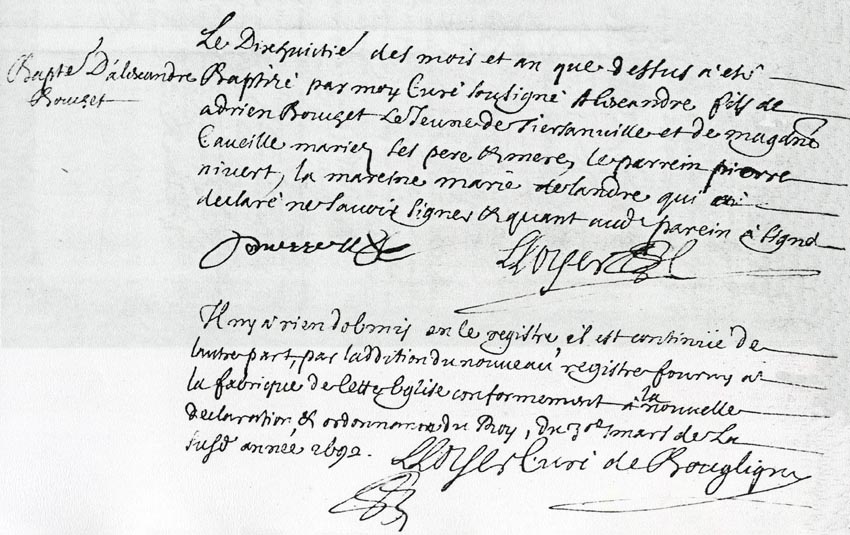 Bapte D'alixandre
Rouget
Le Dixhuictie des mois et an que dessus a eté
Baptizé par moy Curé soussigné Alixandre fils de
adrien Rouget Le Jeune de et de magdne
mariez ses pere & mere, le parrein pierre
nivert, la mareine marie delandre qui
declaré ne savoir signer & quant aud parein a signé
Il ny a rien dobmis en le registre il est continüé de
lautre part, par laddition du nouveau registre fourny a
la fabrique de cette Eglise conformement a la nouvelle
declaration, & ordonnance du Roy, du mars de La
susd année 1692.
Curé de